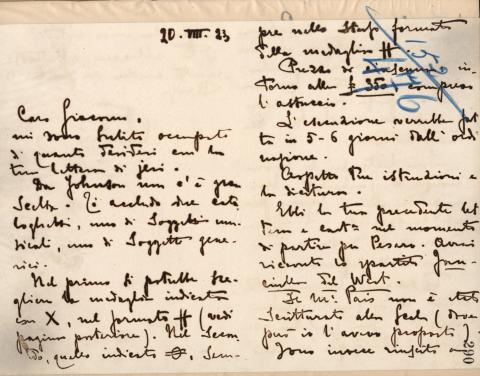 20. VIII. 23
Caro Giacomo,
mi sono subito occupato
di quanto desideri con la
tua lettera di jeri.
Da Johnson non c'è gran
scelta. Ti accludo due cata
loghetti, uno di Soggetti mu
sicali, uno di Soggetti gene
rici.
Nel primo si potrebbe sce
gliere la medaglia indicata
con X, nel formato H (vedi
pagina posteriore). Nel Secon
do, quella indicata, sem-
pre nello stesso formato
della medaglia H.
Prezzo di in-
torno alle £ 350 compreso
l'astuccio.
L'esecuzione verrebbe fat
ta in 5-6 giorni dall'ordi
nazione.
Aspetto tue istruzioni e
la dicitura.
Ebbi la tua precedente let
tera e cart.na nel momento
di partire per Pesaro. Avrai
ricevuto lo spartito Fan-
ciulla del West.
Il Mo. Pais non è stato
scritturato alla Scala (dove
però io l'avevo proposto).
Sono invece riuscito a
290